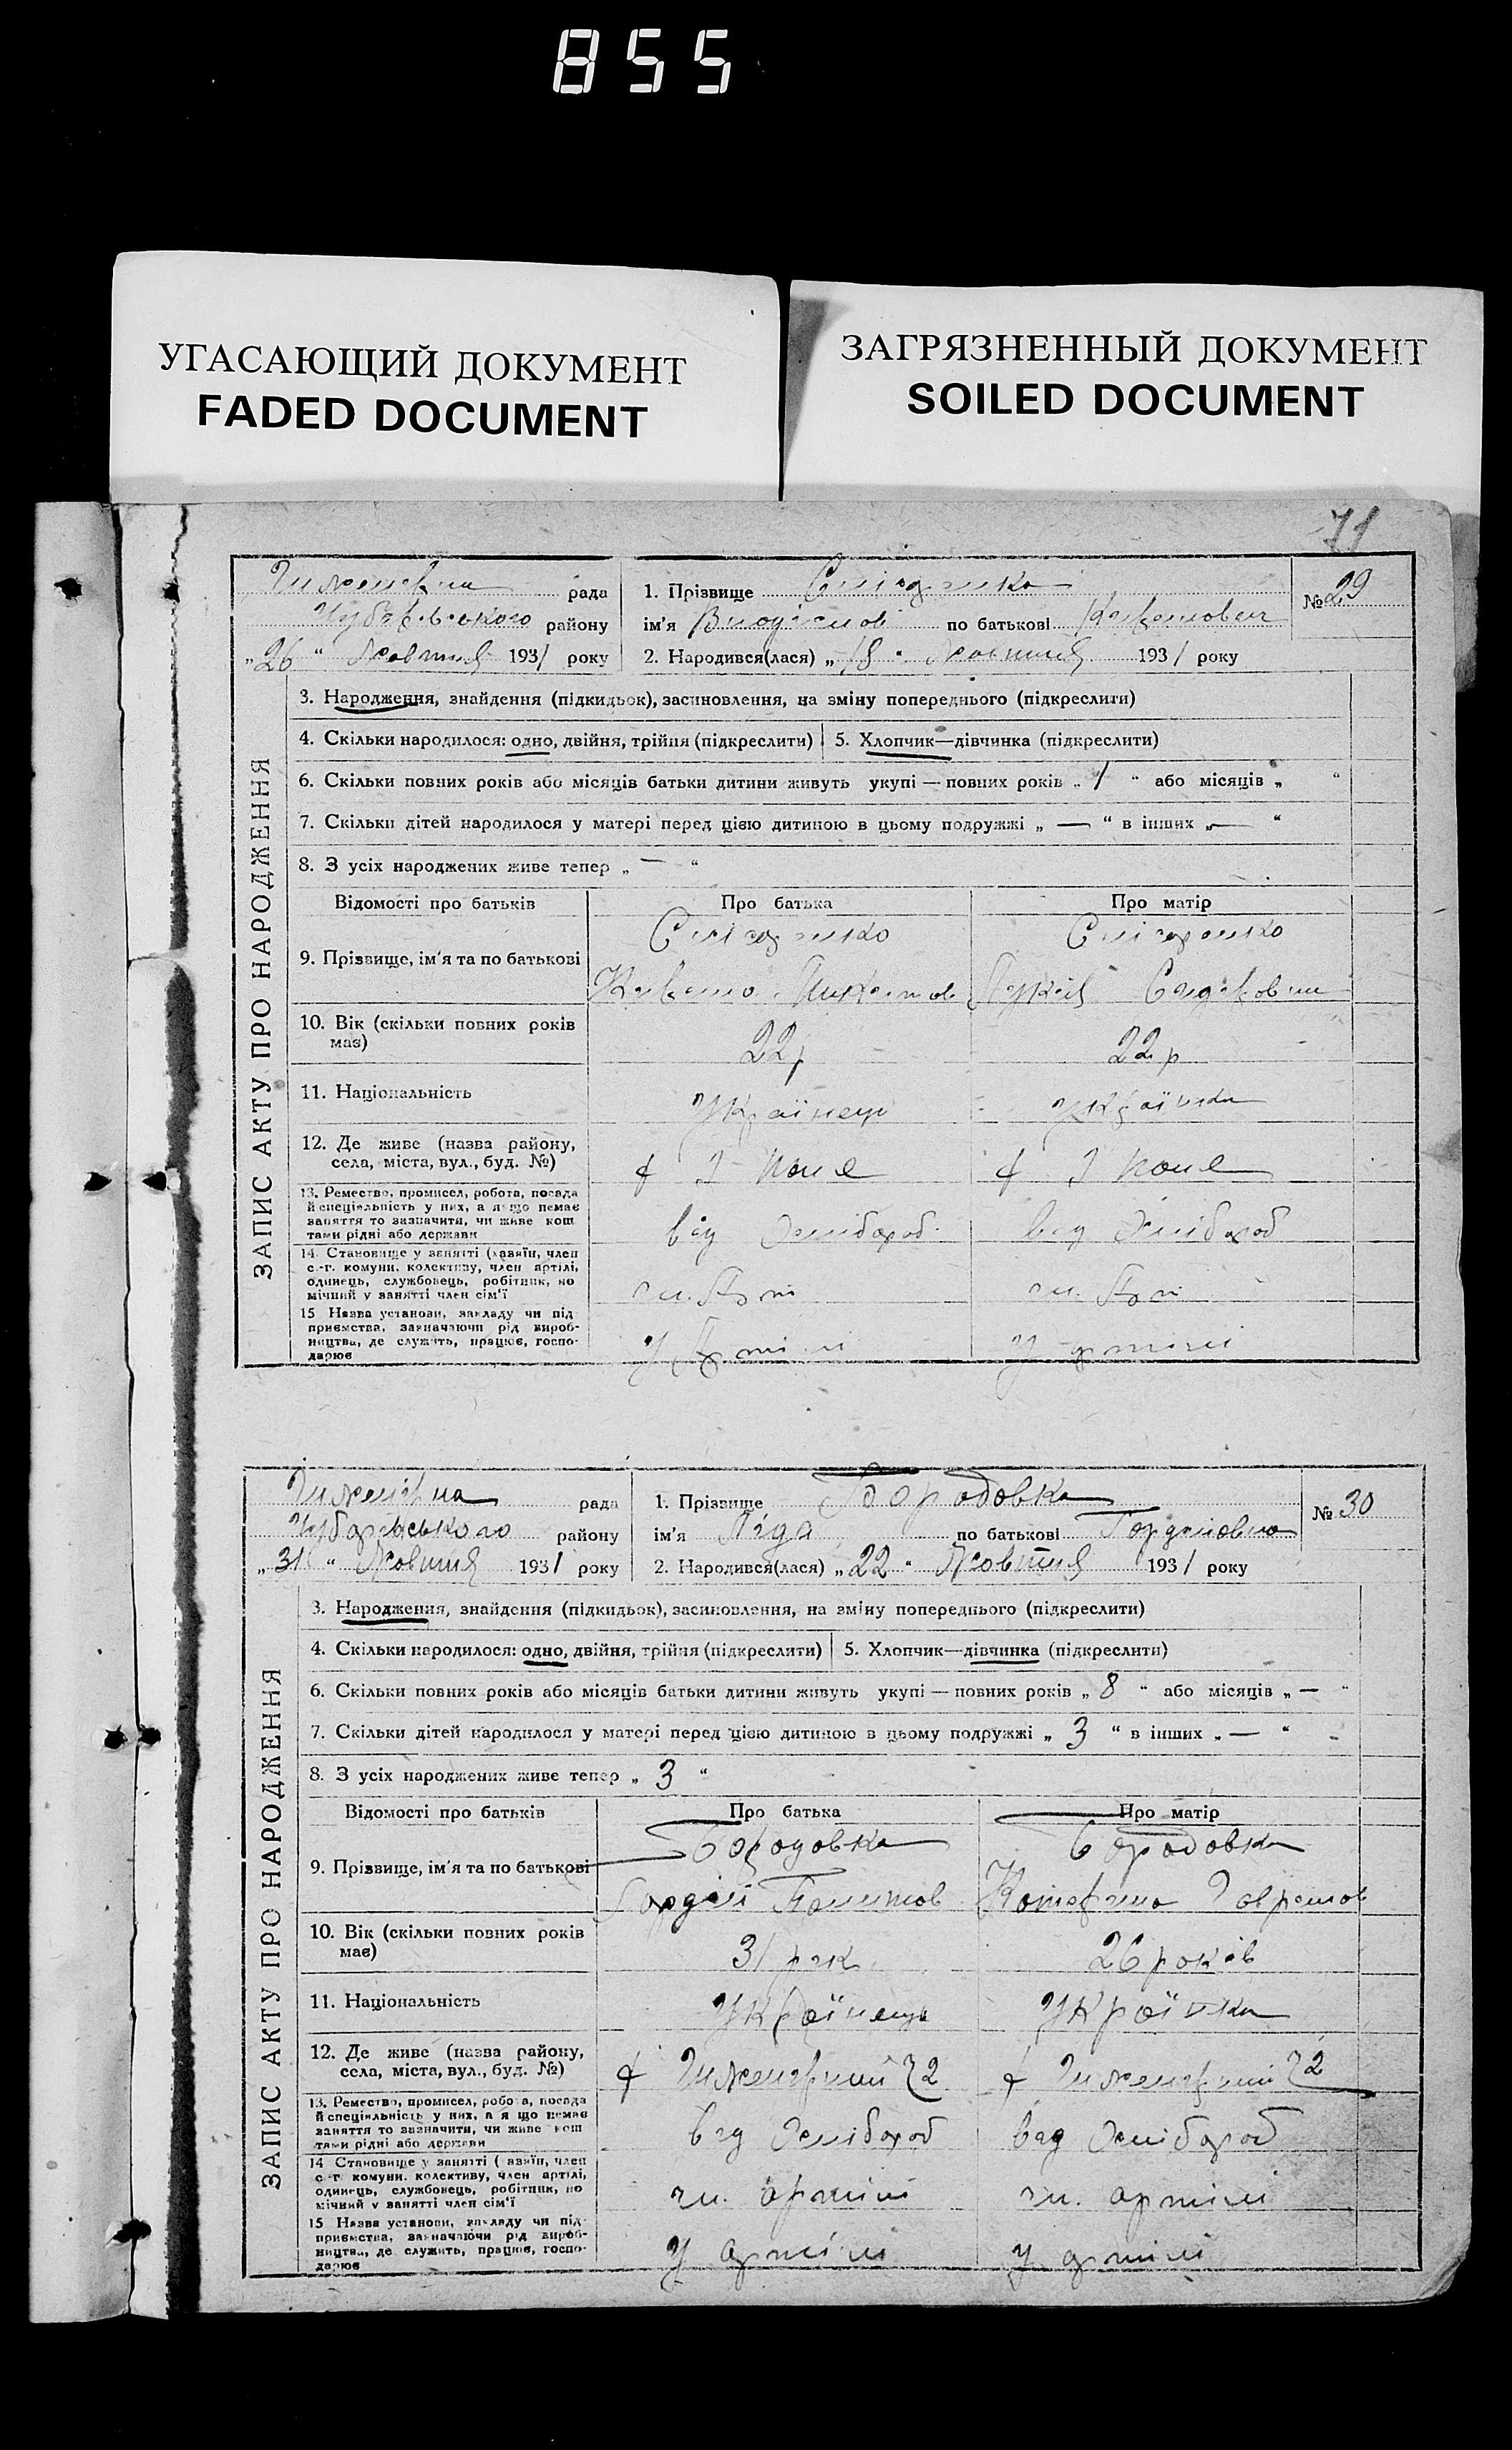 855
УГАСАЮЩИЙ ДОКУМЕНТ
FADED DOCUMENT
ЗАГРЯЗНЕННЫЙ ДОКУМЕНТ
SOILED DOCUMENT
71
ЗАПИС АКТУ ПРО НАРОДЖЕННЯ
рада
району
„26“ Жовтня 1931 року
1. Прізвище
ім'я по батькові
№ 29
2. Народився(лася) „18“ Жовтня 1931 року
3. Народження, знайдення (підкидьок), засиновлення, на зміну попереднього (підкреслити)
4. Скільки народилося: одно, двійня, трійня (підкреслити)
5. Хлопчик—дівчинка (підкреслити)
6. Скільки повних років або місяців батьки дитини живуть укупі — повних років „1“ або місяців „ “
7. Скільки дітей народилося у матері перед цією дитиною в цьому подружжі „—“ в інших „—“
8. З усіх народжених живе тепер „—“
Відомості про батьків
Про батька
Про матір
9. Прізвище, ім'я та по батькові
10. Вік (скільки повних років має)
22р
22р
11. Національність
Українець
Українка
12. Де живе (назва району, села, міста, вул., буд. №)
13. Ремество, промисел, робота, посада й спеціяльність у них, а якщо немає заняття то зазначити, чи живе кош тами рідні або держави
від хлібороб
від хлібороб
14. Становище у занятті (хазяїн, член с.-г. комуни. колективу, член артілі, одинець, службовець, робітник, по мічний у занятті член сім'ї
чл. Арт
чл. Арт
15 Назва установи, закладу чи під приємства, зазначаючи рід вироб- ництва, де служить, працює, госпо- дарює
У Артілі
У артілі
ЗАПИС АКТУ ПРО НАРОДЖЕННЯ
рада
Чубарівського району
„31“ Жовтня 1931 року
1. Прізвище Бородовка
ім'я Ліда по батькові Гордіївна
№ 30
2. Народився(лася) „22“ Жовтня 1931 року
3. Народження, знайдення (підкидьок), засиновлення, на зміну попереднього (підкреслити)
4. Скільки народилося: одно, двійня, трійня (підкреслити)
5. Хлопчик—дівчинка (підкреслити)
6. Скільки повних років або місяців батьки дитини живуть укупі — повних років „8“ або місяців „—“
7. Скільки дітей народилося у матері перед цією дитиною в цьому подружжі „3“ в інших „—“
8. З усіх народжених живе тепер „3“
Відомості про батьків
Про батька
Про матір
9. Прізвище, ім'я та по батькові
Бородовка
Бородовка
Гордій
Катерина
10. Вік (скільки повних років має)
31 рік
26 років
11. Національність
Українець
Українка
12. Де живе (назва району, села, міста, вул., буд. №)
13. Ремество, промисел, робота, посада й спеціяльність у них, а якщо немає заняття то зазначити, чи живе кош тами рідні або держави
від хлібороб
від хлібороб
14 Становище у занятті (хазяїн, член с-г. комуни. колективу, член артілі, одинець, службовець, робітник, по мічний у занятті член сім'ї
чл. артілі
чл. артілі
15 Назва установи, закладу чи під приємства, зазначаючи рід вироб- ництва, де служить, працює, госпо- дарює
У артілі
У артілі